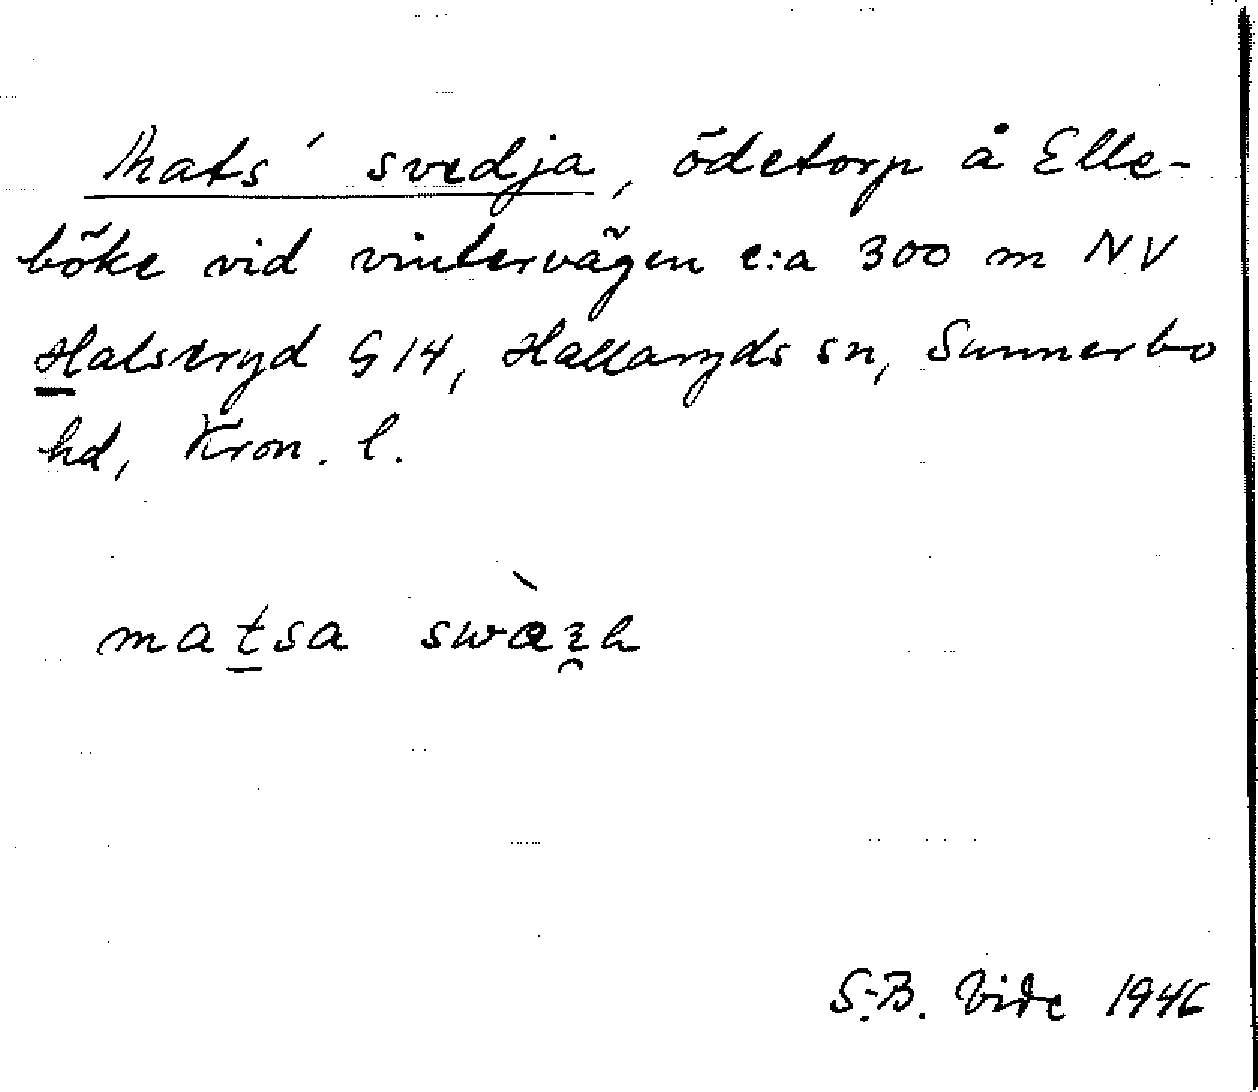 Mats' svedja, ödetorp å Elle-
böke vid vintervägen c:a 300 m NV
Halseryd G 14, Hallaryds sn, Sunnerbo
hd, Kron. l.
matsa
S.-B. Vide 1946